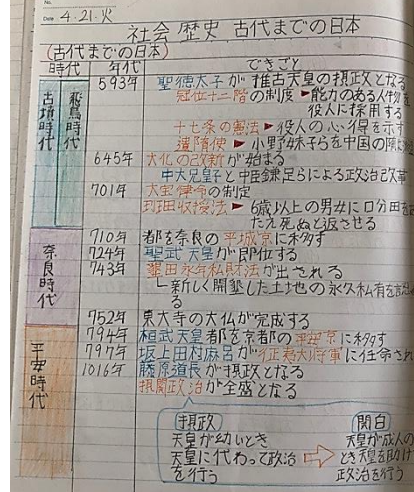 No.
Date 4.21.火
社会 歴史 古代までの日本
(古代までの日本)
時代 年代 できごと
古墳時代
飛鳥時代
593年 聖徳太子が 推古天皇の摂政となる
冠位十二階の制度 ▶ 能力のある人物を
役人に採用する
十七条の憲法 ▶ 役人の心得を示す
遣隋使 ▶ 小野妹子らを中国の隋に
645年 大化の改新が始まる
中大兄皇子と中臣鎌足らによる政治改革
701年 大宝律令の制定
班田収授法 ▶ 6歳以上の男女に口分田を
たえ死ぬと返させる
奈良時代
710年 都を奈良の平城京に移す
724年 聖武天皇が即位する
743年 墾田永年私財法が出される
新しく開墾した土地の永久私有を認め
る
752年 東大寺の大仏が完成する
平安時代
794年 桓武天皇都を京都の平安京に移す
797年 坂上田村麻呂が征夷大将軍に任命され
1016年 藤原道長が摂政となる
摂関政治が全盛となる
摂政
天皇が幼いとき
天皇に代わって政治
を行う
関白
天皇が成人の
とき天皇を助け
政治を行う